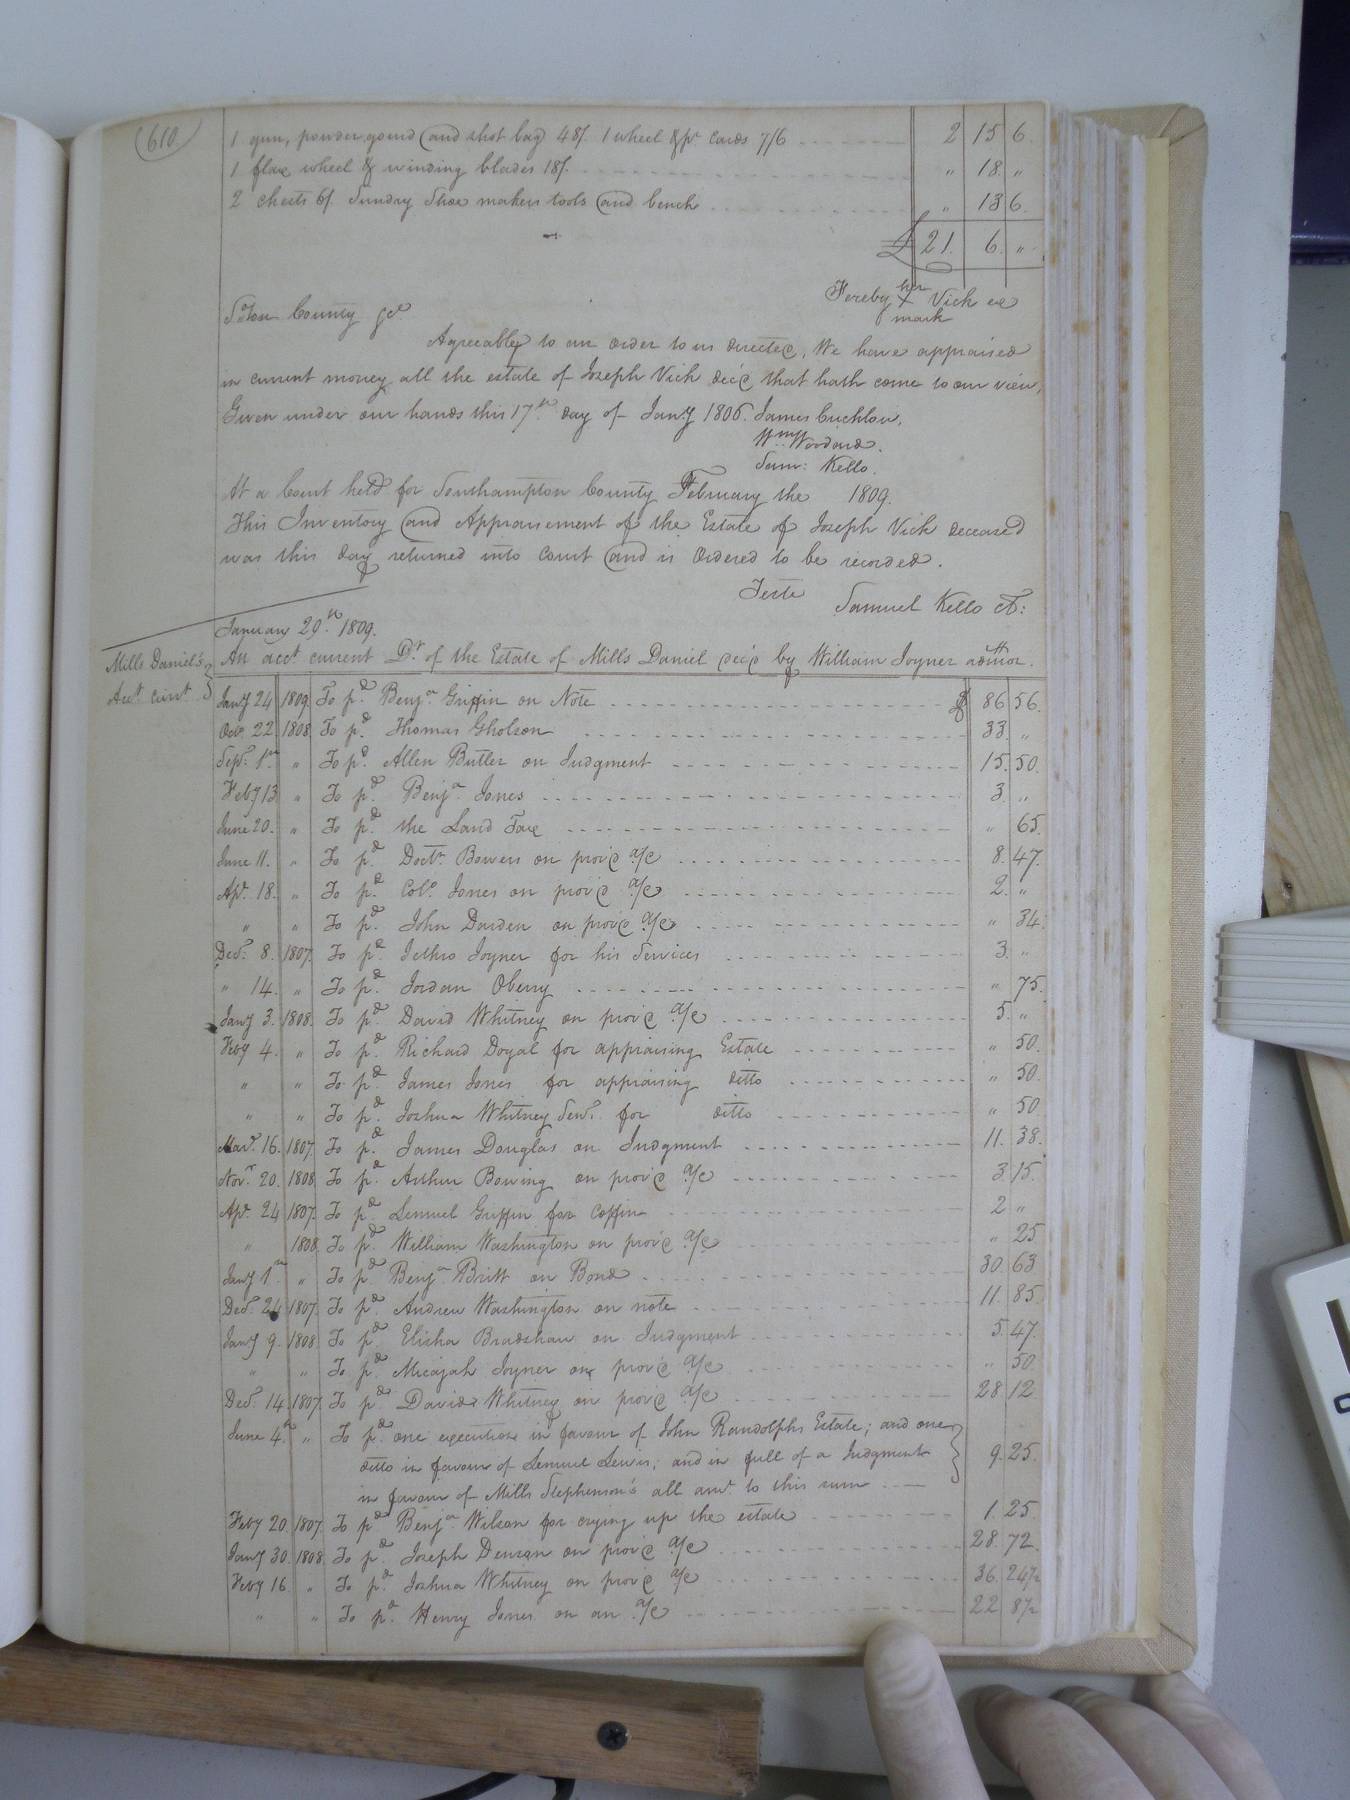 (610)
1 gun, powder gourd and shot bag 48/. 1 wheel & pr. cards 7/6 2 15 6
1 flax wheel & winding blades 18/. " 18 "
2 chests of Sundry Shoe makers tools and bench " 13 6
£ 21. 6. "
Fereby her X mark Vick exx
S.ton County Sct
Agreeably to an order to us directed, We have appraised
in current money all the estate of Joseph Vick dec'd that hath come to our view,
Given under our hands this 17th day of Jany 1806. James Crichlow,
Wm Woodard.
Sam: Kello.
At a Court held for Southampton County February the 1809.
This Inventory and Appraisement of the Estate of Joseph Vick deceased
was this day returned into Court and is Ordered to be recorded.
Teste Samuel Kello Ct:
January 29th 1809.
Mills Daniel's
Acct curt
An acct current Dr of the Estate of Mills Daniel dec'd by William Joyner admor.
Jany 24 1809 To pd. Benja Griffin on Note $ 86 56.
Octr 22 1808 To pd. Thomas Gholson 33. "
Sepr. 1st " To pd. Allen Butler on Judgment 15. 50.
Feby 13 " To pd. Benja Jones 3. "
June 20. " To pd. the Land Tax " 65.
June 11. " To pd. Doctr. Bowers on prov'd a/c 8. 47.
Apr. 18. " To pd. Colo Jones on prov'd a/c 2. "
" " To pd. John Darden on prov'd a/c " 34.
Decr. 8. 1807. To pd. Jethro Joyner for his Services 3. "
" 14. " To pd. Jordan Oberry " 75.
Jany 3. 1808. To pd. David Whitney on prov'd a/c 5. "
Feby 4. " To pd. Richard Doyal for appraising Estate " 50.
" " To pd. James Jones for appraising ditto " 50.
" " To pd. Joshua Whitney Senr. for ditto " 50
Mar. 16. 1807. To pd. James Douglas on Judgment 11. 38.
Novr. 20. 1808 To pd. Arthur Bowing on prov'd a/c 3. 15.
Apr. 24 1807. To pd. Lemuel Griffin for Coffin 2 "
" 1808. To pd. William Washington on prov'd a/c " 25
Jany 1st " To pd. Benja Britt on Bond 30. 63
Decr. 24 1807. To pd. Andrew Washington on note 11. 85.
Jany 9. 1808. To pd. Elisha Bradshaw on Judgment 5. 47.
" " To pd. Micajah Joyner on prov'd a/c " 50.
Decr. 14 1807. To pd. David Whitney on prov'd a/c 28 12
June 4th " To pd. one execution in favour of John Randolphs Estate; and one
ditto in favour of Lemuel Lewis; and in full of a Judgment 9. 25.
in favour of Mills Stephenson's all amt. to this sum
Feby 20. 1807. To pd. Benja Wilson for crying up the estate 1. 25.
Jany 30. 1808. To pd. Joseph Denson on prov'd a/c 28. 72.
Feby 16. " To pd. Joshua Whitney on prov'd a/c 36. 24½
" " To pd. Henry Jones on an a/c 22 8½